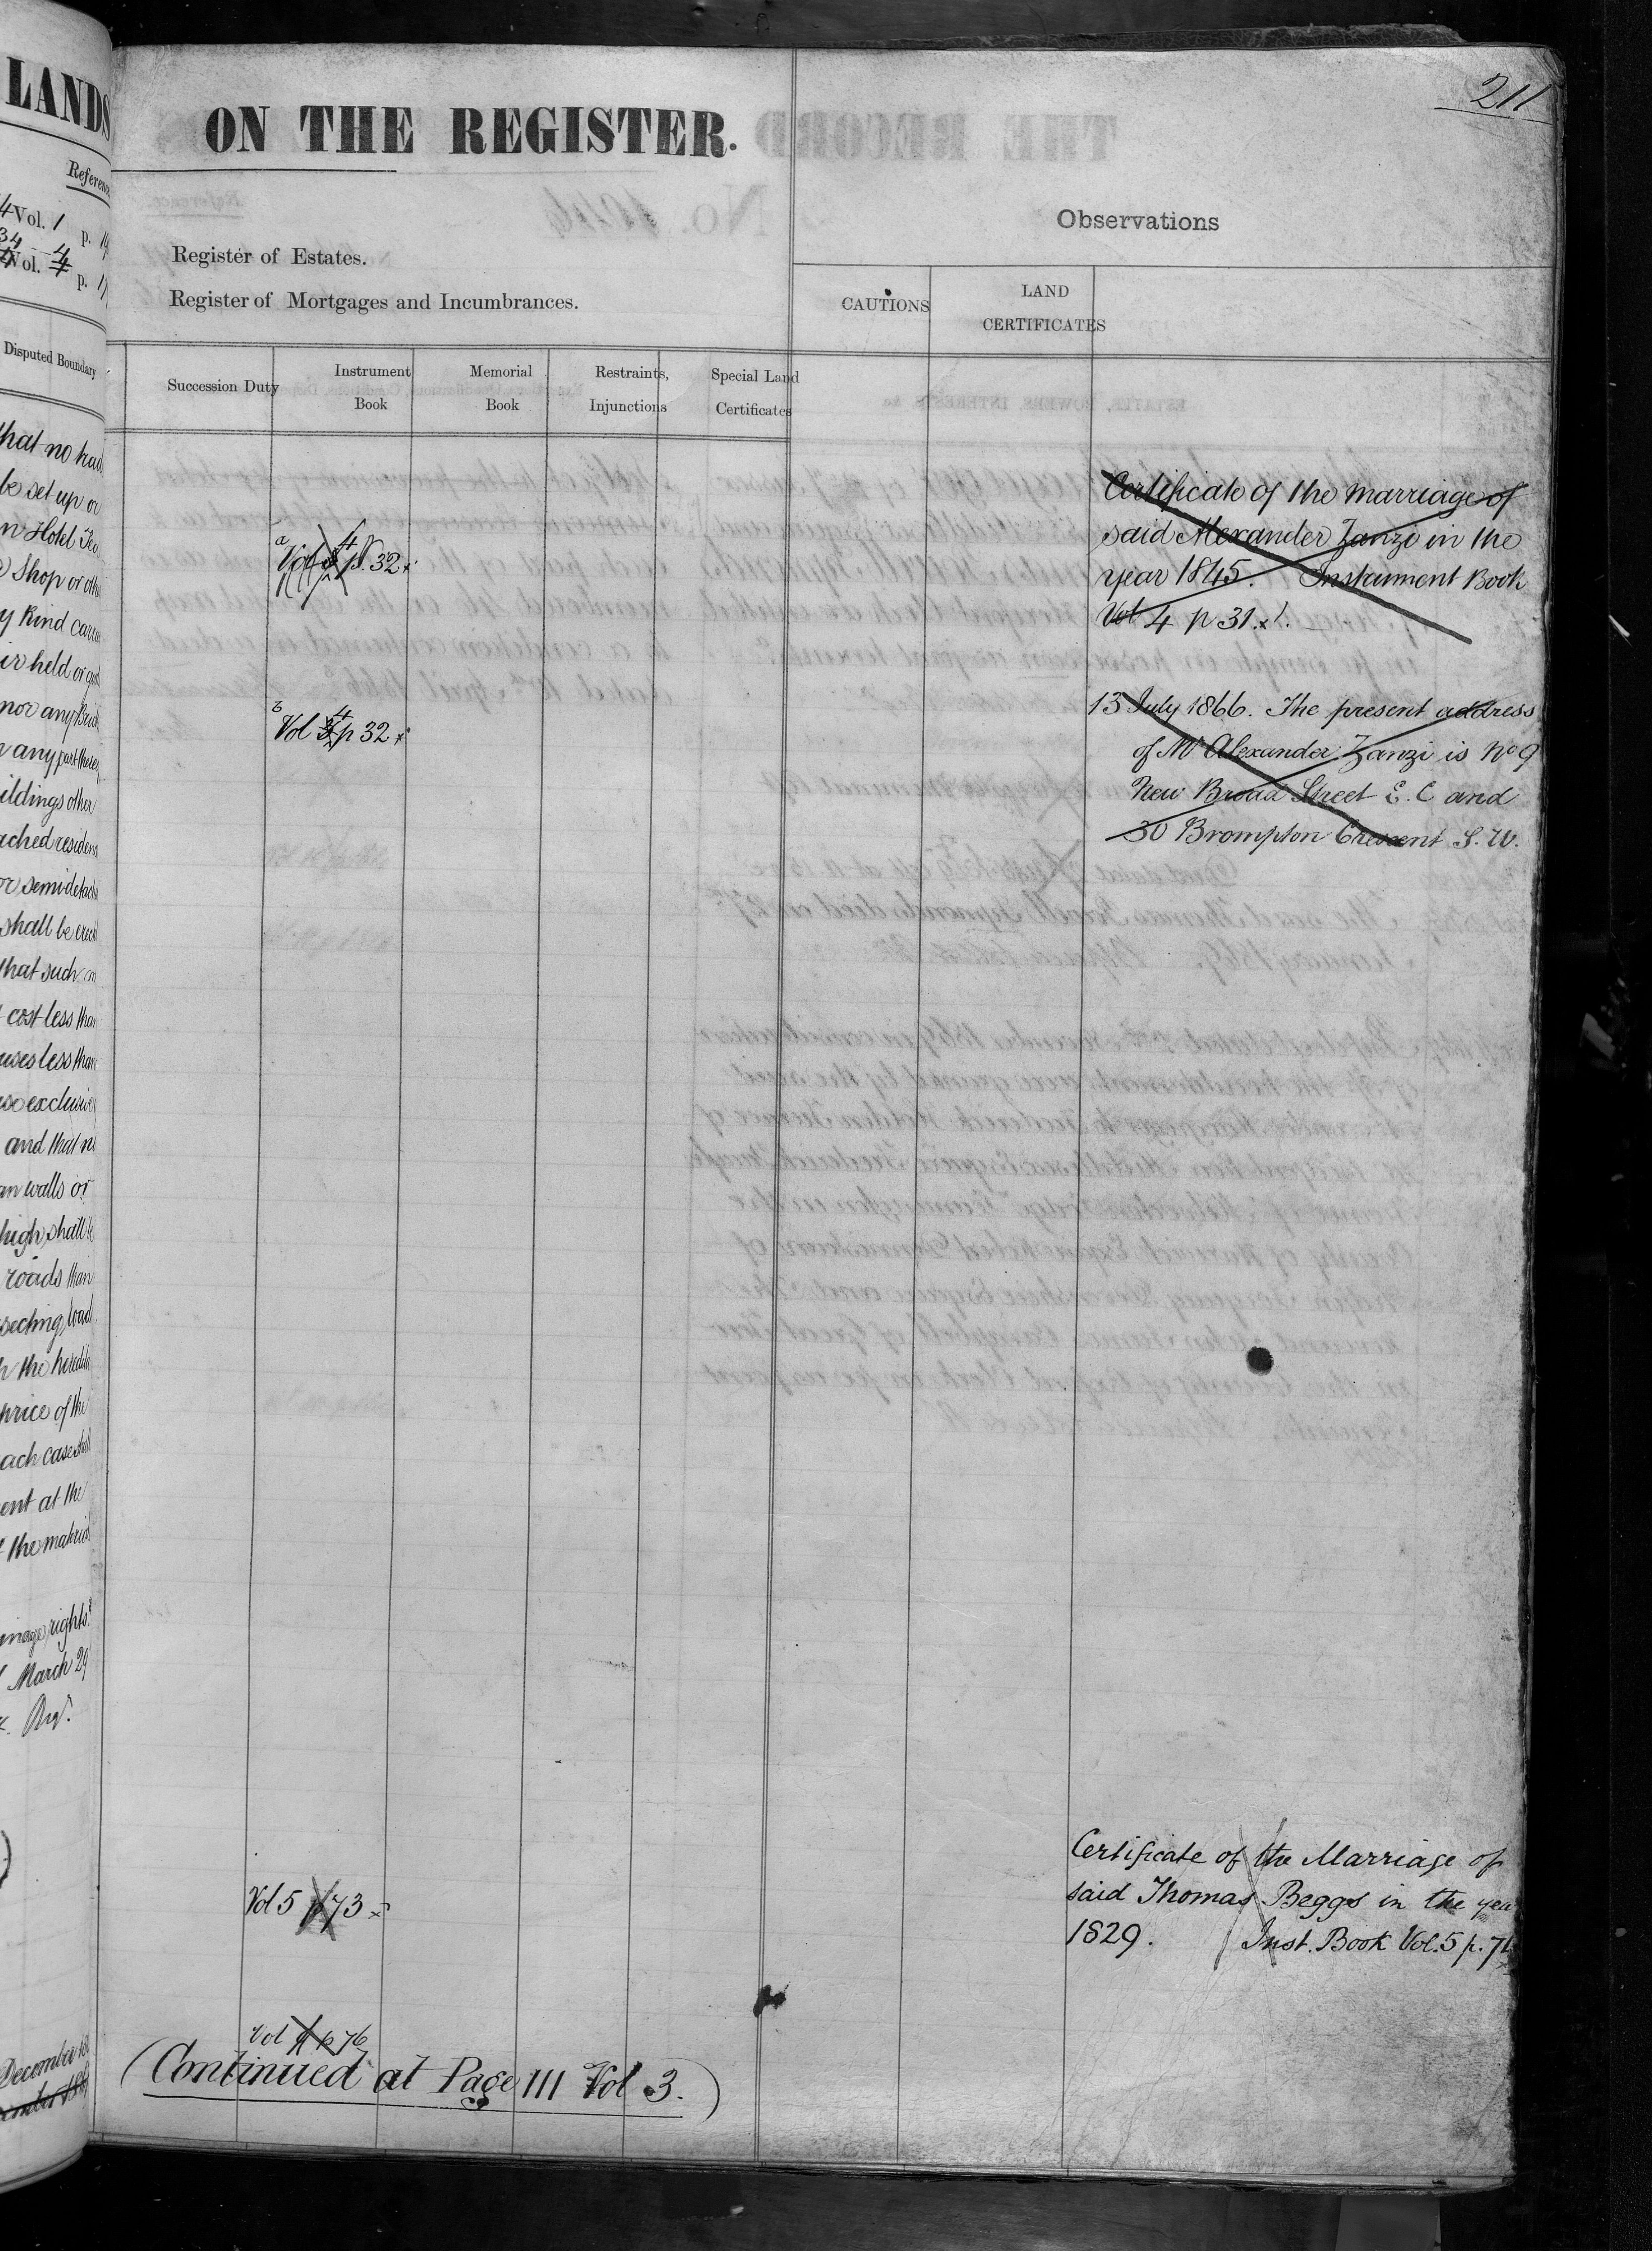 LANDS
Reference
Vol. 1 p.
Vol. 4 p.
Disputed Boundary
that no trad
be set up or
n Hotel Tea
Shop or oth
y Kind carri
ir held or
nor any Buil
n any part there
ildings other
ached residenc
or semidetach
shall be erect
that such m
cost less than
uses less than
so exclusive
and that no
an walls or
high, shall b
roads than
secting road
h the heredita
price of the
ach case shall
ent at the
the material
inage rights.
March 29
December 18
211
ON THE REGISTER.
Register of Estates.
Register of Mortgages and Incumbrances.
Observations
CAUTIONS
LAND
CERTIFICATES
Succession Duty
Instrument
Book
Memorial
Book
Restraints,
Injunctions
Special Land
Certificates
Certificate of the Marriage of
said Alexander Zanzi in the
year 1845. Instrument Book
Vol 4 p 31.
a
Vol 4 p. 32
13 July 1866. The present address
of Mr Alexander Zanzi is No 9
New Broad Street E.C and
30 Brompton Crescent S.W.
b
Vol 4 p 32
Certificate of the Marriage of
said Thomas Beggs in the yea
1829. Inst. Book Vol. 5 p. 71
Vol 5 p 73
Vol p 76
(Continued at Page 111 Vol 3.)